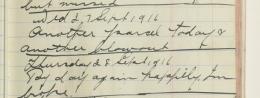 but missed
Wed 27 Sept. 1916
Another parcel today &
another blowout
Thursday 28 Sept. 1916
Pay day again happily, Im
broke.